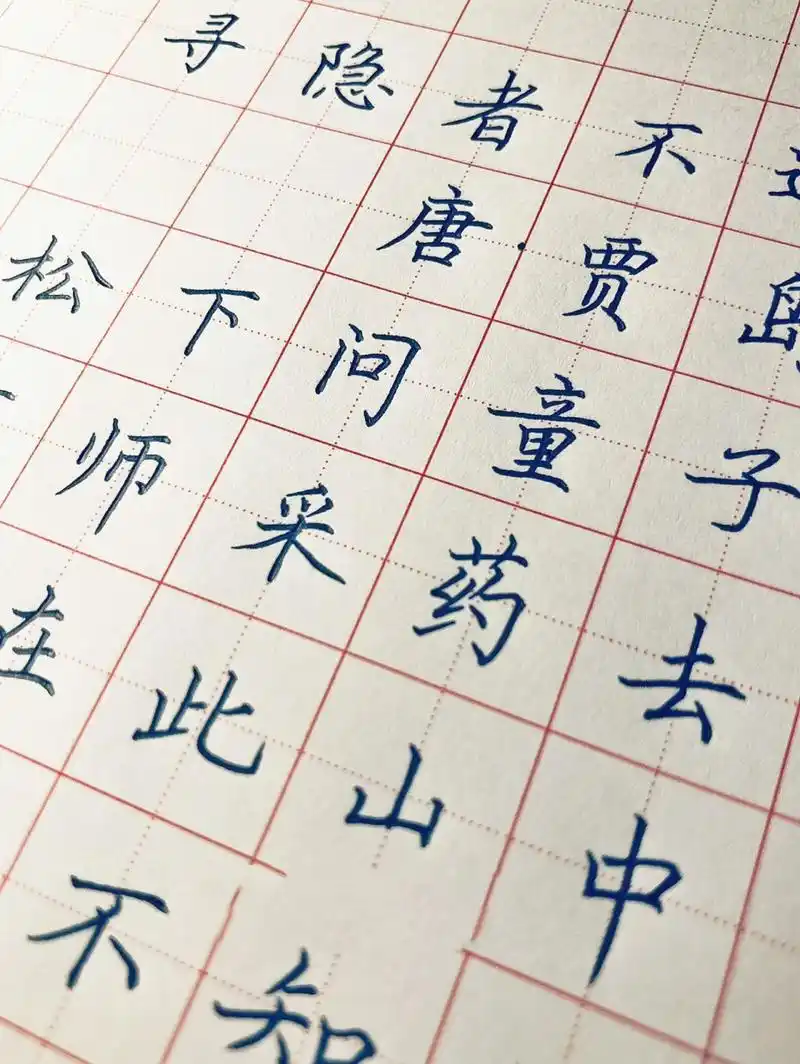 寻隐者不遇
唐·贾岛
松下问童子
师采药去
在此山中
不知